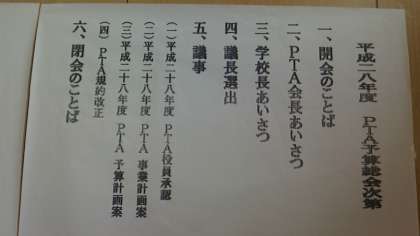 平成二八年度 PTA予算総会次第
一、開会のことば
二、PTA会長あいさつ
三、学校長あいさつ
四、議長選出
五、議事
(一)平成二十八年度 PTA役員承認
(二)平成二十八年度 PTA 事業計画案
(三)平成二十八年度 PTA 予算計画案
(四)PTA規約改正
六、閉会のことば